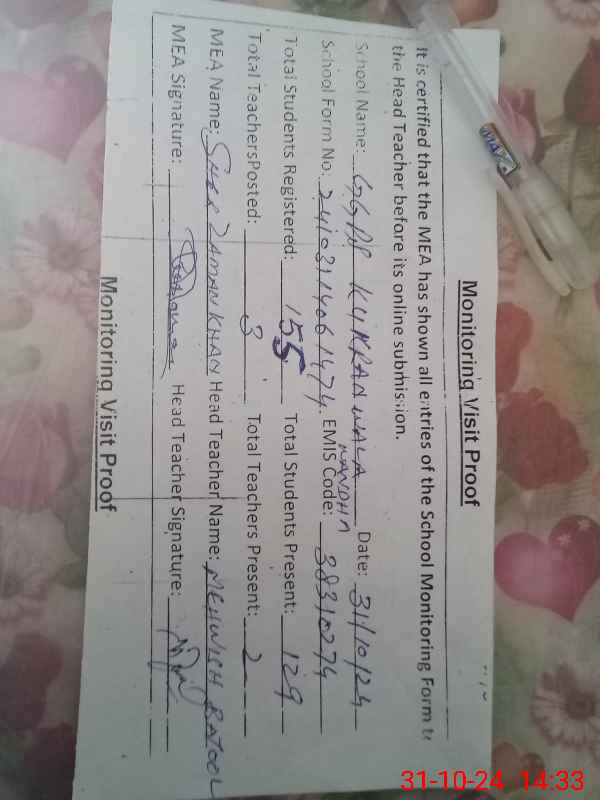 Monitoring Visit Proof
It is certified that the MEA has shown all entries of the School Monitoring Form to
the Head Teacher before its online submission.
School Name: GGPS KUKRANWALA Date: 31/10/24
School Form No: 2410311406 1474. EMIS Code: 38310274
Total Students Registered: 155 Total Students Present: 129
Total TeachersPosted: 3 Total Teachers Present: 2
MEA Name: SHER ZAMAN KHAN Head Teacher Name: MEHWISH BATOOL
MEA Signature: Head Teacher Signature:
Monitoring Visit Proof
31-10-24 14:33